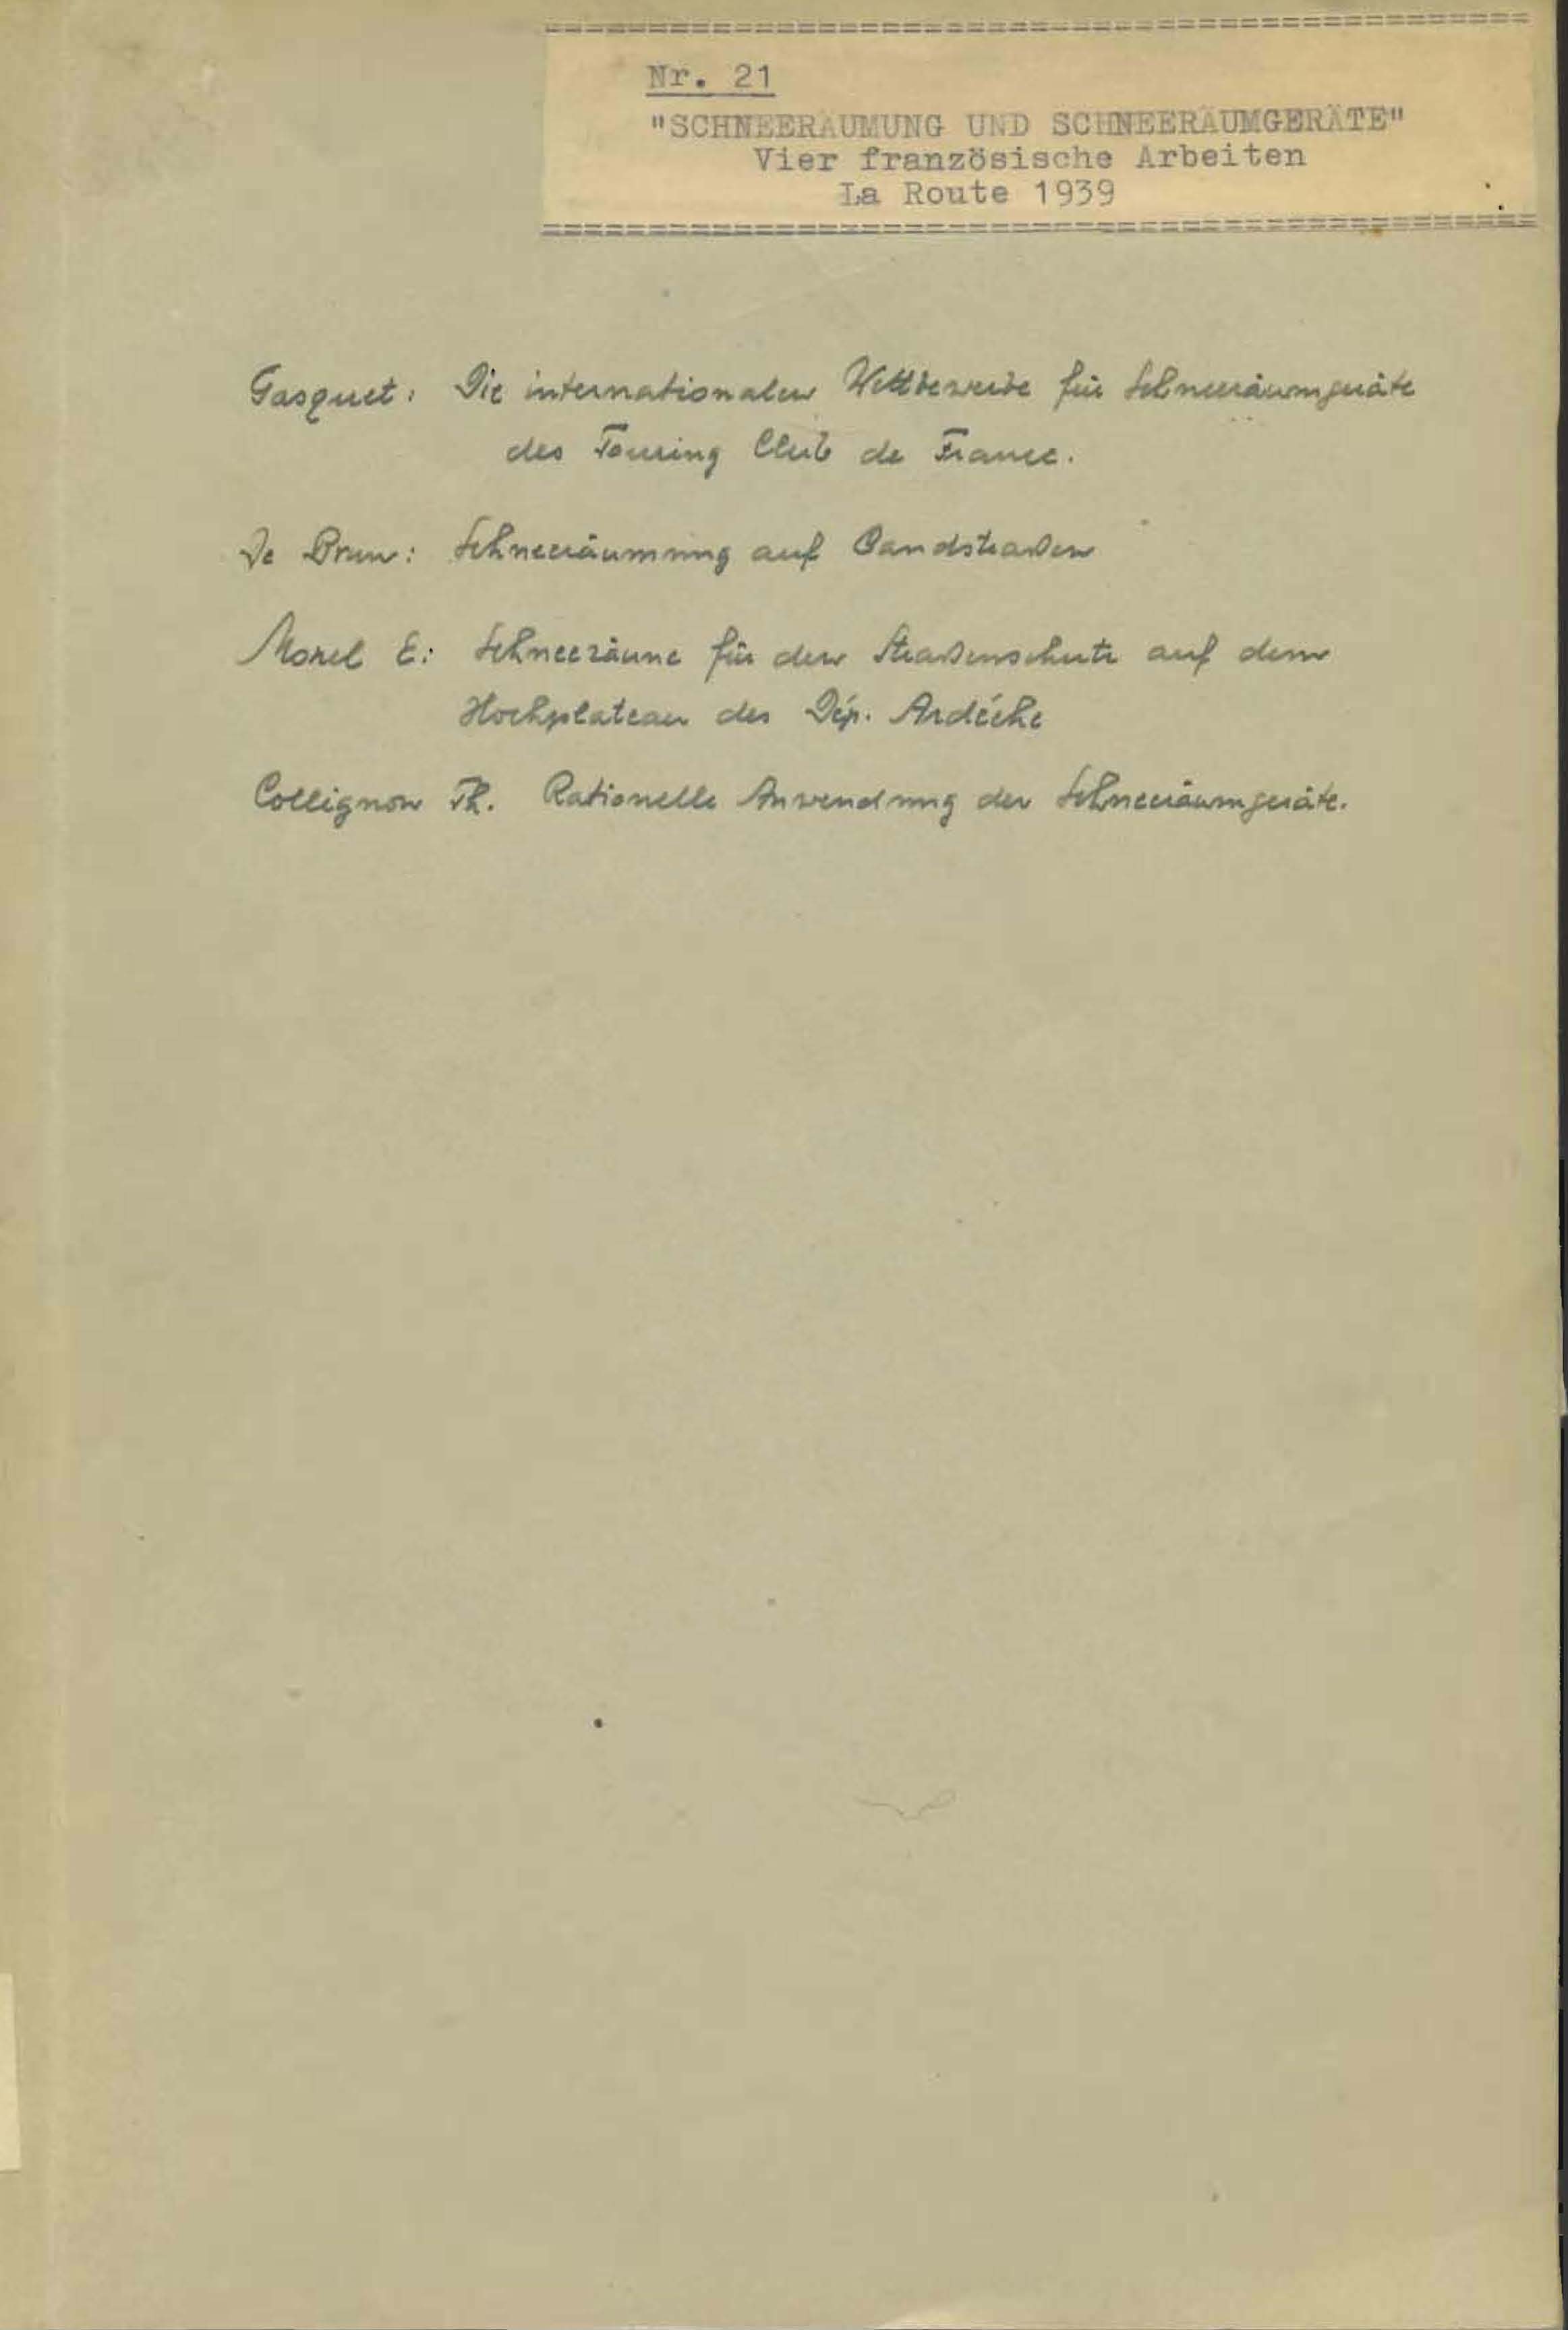 Nr. 21
"SCHNEERÄUMUNG UND SCHNEERÄUMGERÄTE"
Vier französische Arbeiten
La Route 1939
Gasquet: Die internationalen Wettbewerbe für Schneeräumgeräte
des Touring Club de France.
De Brun: Schneeräumung auf Landstraßen
Morel E: Schneezäune für den Straßenschutz auf dem
Hochplateau des Dép. Ardéche
Collignon Th. Rationelle Anwendung der Schneeräumgeräte.